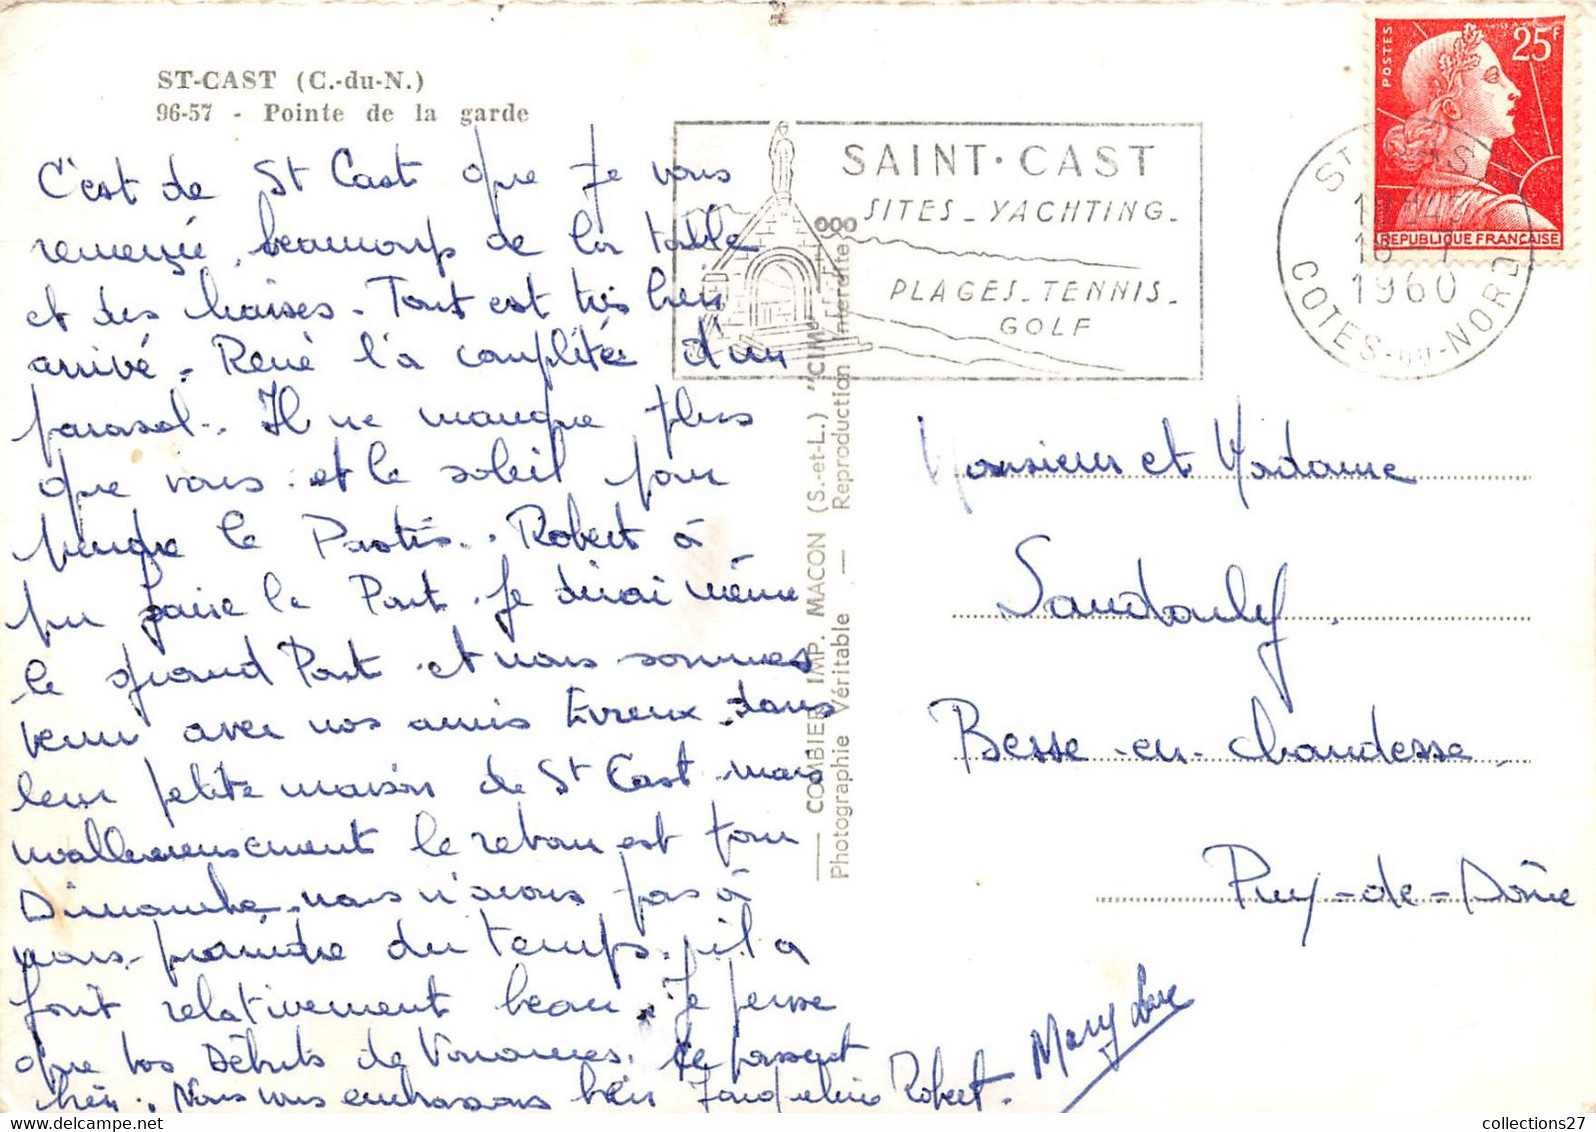 ST-CAST (C.-du-N.)
96-57 - Pointe de la garde
C'est de St Cast que je vous
remercie beaucoup de la table
et des chaises. Tout est très bien
arrivé. René l'a complétée d'un
parasol.. Il ne manque plus
que vous et le soleil pour
prendre le Pastis.. Robert à
pu faire le Pont. Je dirai même
le grand Pont. et nous sommes
venu avec nos amis Evreux. dans
leur petite maison de St Cast mais
malheureusement le retour est pour
Dimanche. nous n'avons pas à
nous plaindre du temps. il a
fait relativement beau. Je pense
que vos Débuts de Vacances. se passent
bien. Nous vous embrassons bien Jacqueline Robert.
Mary
SAINT·CAST
SITES_YACHTING_
PLAGES_TENNIS_
GOLF
COMBIER IMP. MACON (S.-et-L.) "CIM"
Photographie Véritable — Reproduction interdite
POSTES
25F
REPUBLIQUE FRANÇAISE
ST
1960
COTES-DU-NORD
Monsieur et Madame
Sandouly.
Besse-en-Chandesse.
Puy-de-Dôme
collections27